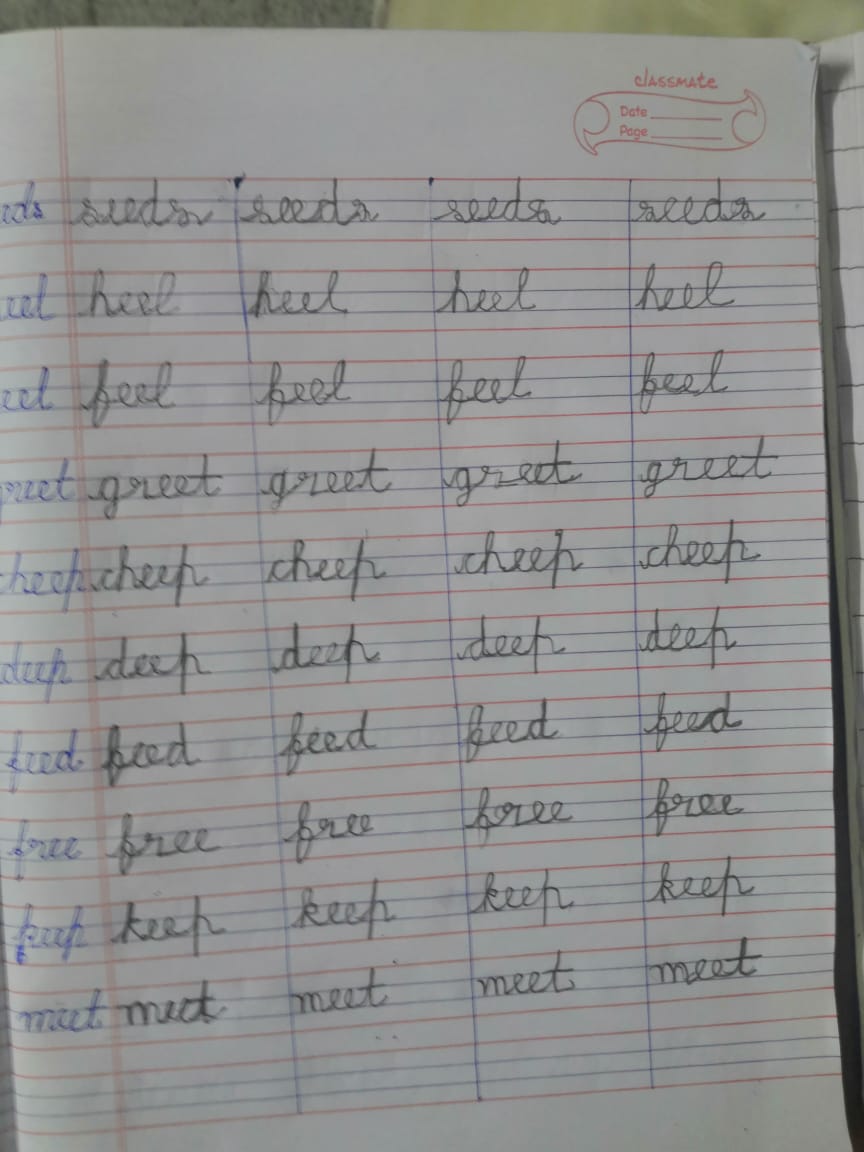 classmate
Date
Page
seeds seeds seeds seeds
heel heel heel heel
feel feel feel feel
greet greet greet greet greet
cheep cheep cheep cheep cheep
deep deep deep deep deep
feed feed feed feed feed
free free free free free
keep keep keep keep keep
meet meet meet meet meet